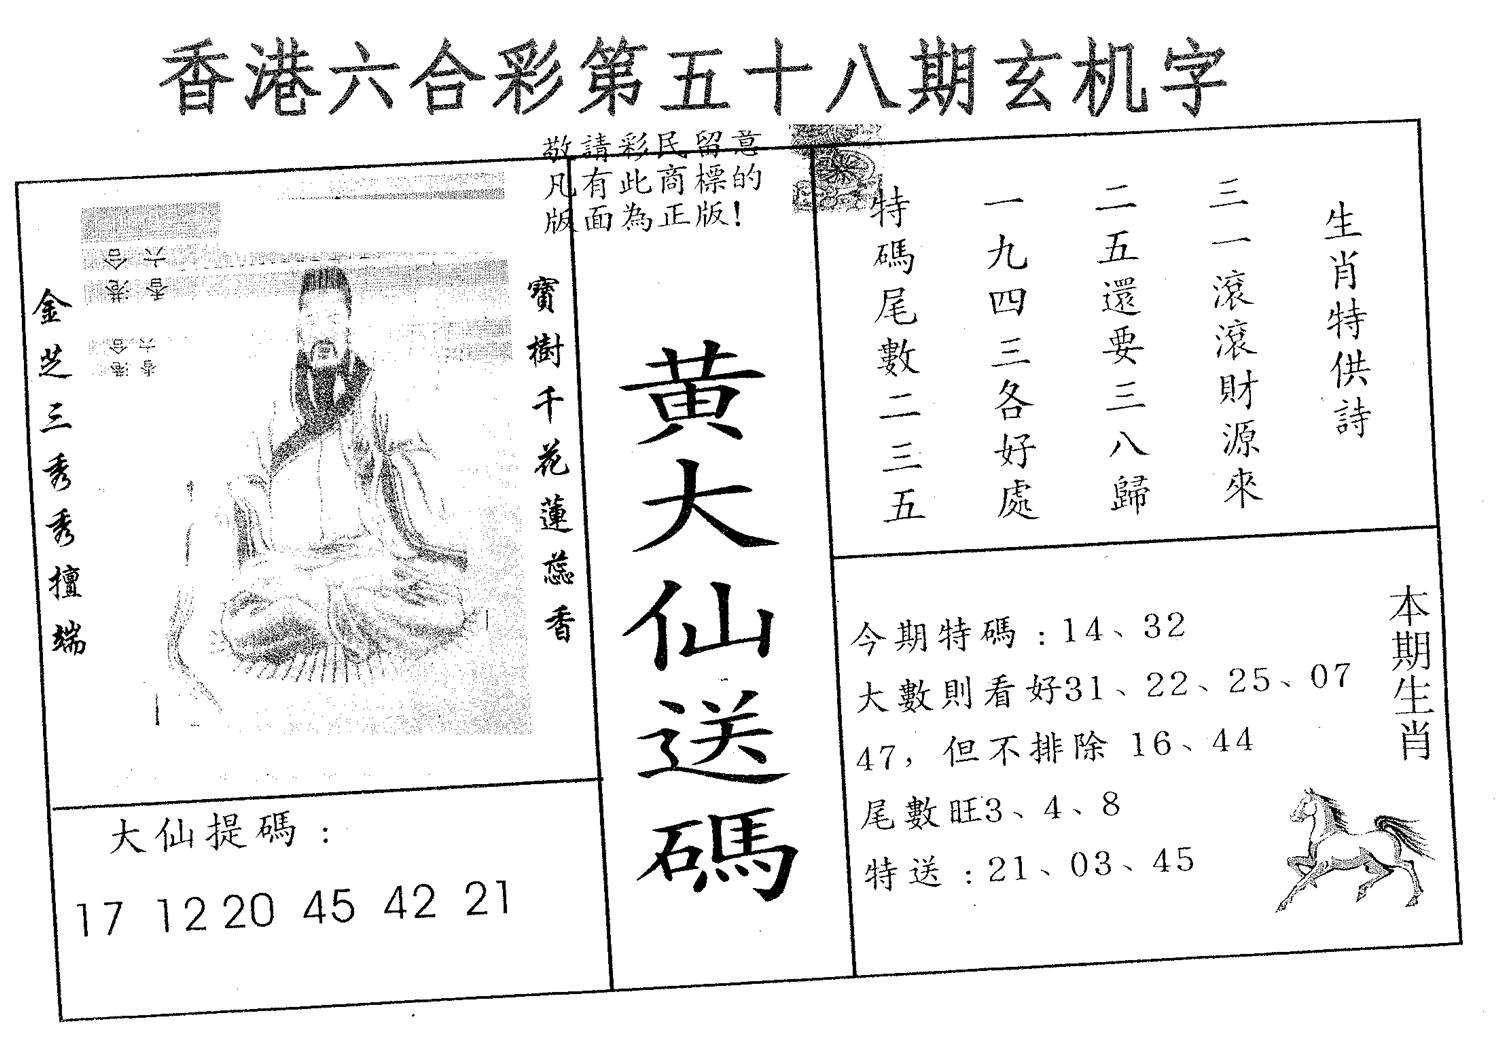 香港六合彩第五十八期玄机字
敬請彩民留意
凡有此商標的
版面為正版!
寶樹千花蓮蕊香
金芝三秀秀擅端
香港
六合
香港
六合
黄大仙送碼
生肖特供詩
三一滾滾財源來
二五還要三八歸
一九四三各好處
特碼尾數二三五
大仙提碼:
17 12 20 45 42 21
今期特碼:14、32
大數則看好31、22、25、07
47,但不排除 16、44
尾數旺3、4、8
特送:21、03、45
本期生肖